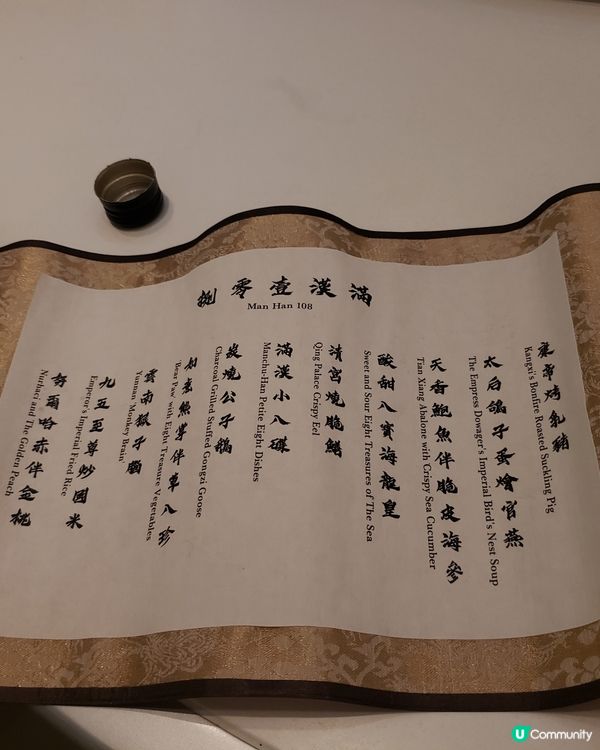 滿漢壹零捌
Man Han 108
康帝烤乳豬
Kangxi's Bonfire Roasted Suckling Pig
太后鴿子蛋燴官燕
The Empress Dowager's Imperial Bird's Nest Soup
天香鮑魚伴脆皮海參
Tian Xiang Abalone with Crispy Sea Cucumber
酸甜八寶海龍皇
Sweet and Sour Eight Treasures of The Sea
清宮燒脆鱔
Qing Palace Crispy Eel
滿漢小八碟
Manchu-Han Petite Eight Dishes
炭燒公子鵝
Charcoal Grilled Stuffed Gongzi Goose
熊掌伴草八珍
'Bear Paw' with Eight Treasure Vegetables
雲南猴子腦
Yunnan 'Monkey Brain'
九五至尊炒國米
Emperor's Imperial Fried Rice
努爾哈赤伴金桃
Nurhaci and The Golden Peach
U Community